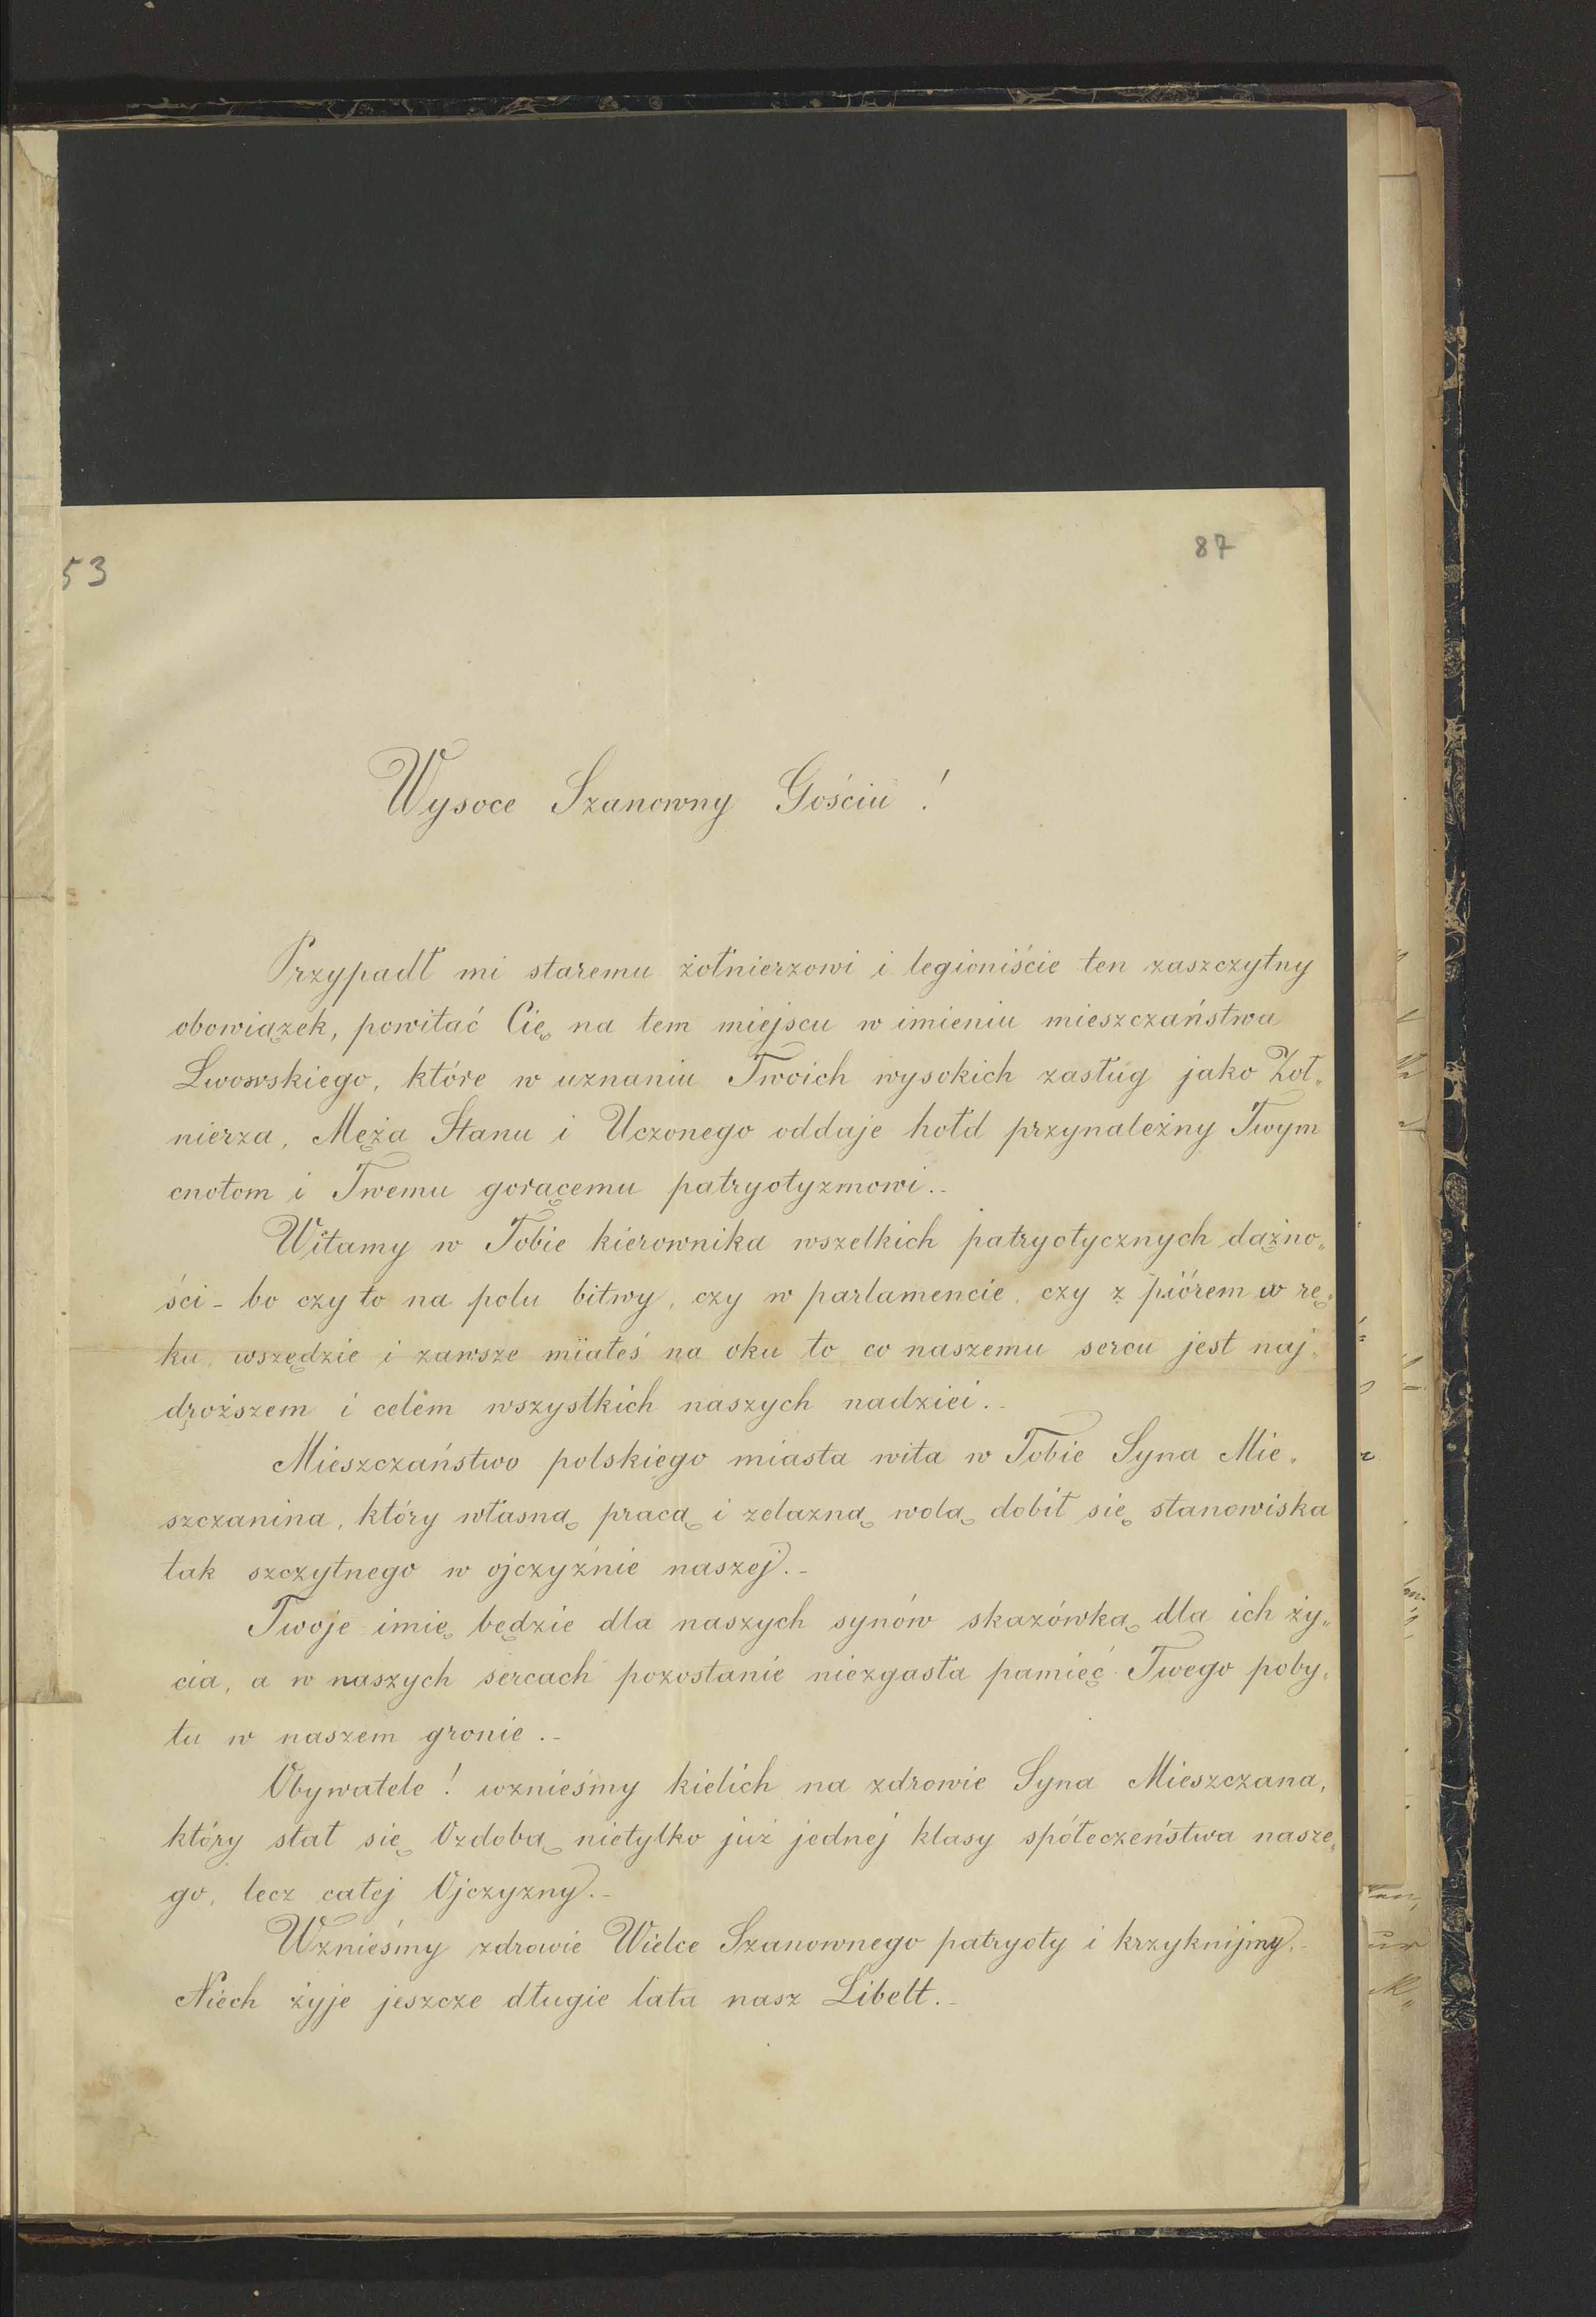 53
87
Wysoce Szanowny Gościu !
Przypadł mi staremu żołnierzowi i legioniście ten zaszczytny
obowiązek, powitać Cię na tem miejscu w imieniu mieszczaństwa
Lwowskiego, które w uznaniu Twoich wysokich zasług jako Żoł„
nierza, Męża Stanu i Uczonego oddaje hołd przynależny Twym
cnotom i Twemu gorącemu patryotyzmowi.-
Witamy w Tobie kierownika wszelkich patryotycznych dążno„
ści - bo czy to na polu bitwy, czy w parlamencie, czy z piórem w rę„
ku, wszędzie i zawsze miałeś na oku to co naszemu sercu jest naj„
droższem i celem wszystkich naszych nadziei.-
Mieszczaństwo polskiego miasta wita w Tobie Syna Mie„
szczanina, który własną pracą i zelazną wolą dobił się stanowiska
tak szczytnego w ojczyźnie naszej.-
Twoje imię będzie dla naszych synów skazówką dla ich ży„
cia, a w naszych sercach pozostanie niezgasła pamięć Twego poby„
tu w naszem gronie.-
Obywatele ! wznieśmy kielich na zdrowie Syna Mieszczana,
który stał się Ozdobą nietylko już jednej klasy spółeczeństwa nasze„
go, lecz całej Ojczyzny.-
Wznieśmy zdrowie Wielce Szanownego patryoty i krzyknijmy.-
Niech żyje jeszcze długie lata nasz Libelt.-